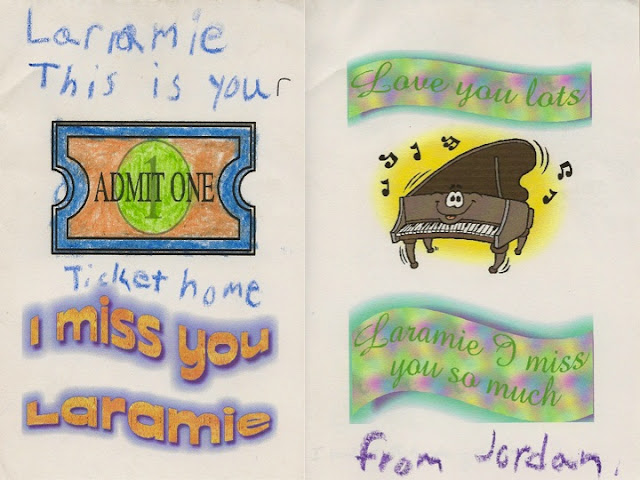 Laramie
This is your
1
ADMIT ONE
Ticket home
I miss you
Laramie
Love you lots
Laramie I miss
you so much
from Jordan,